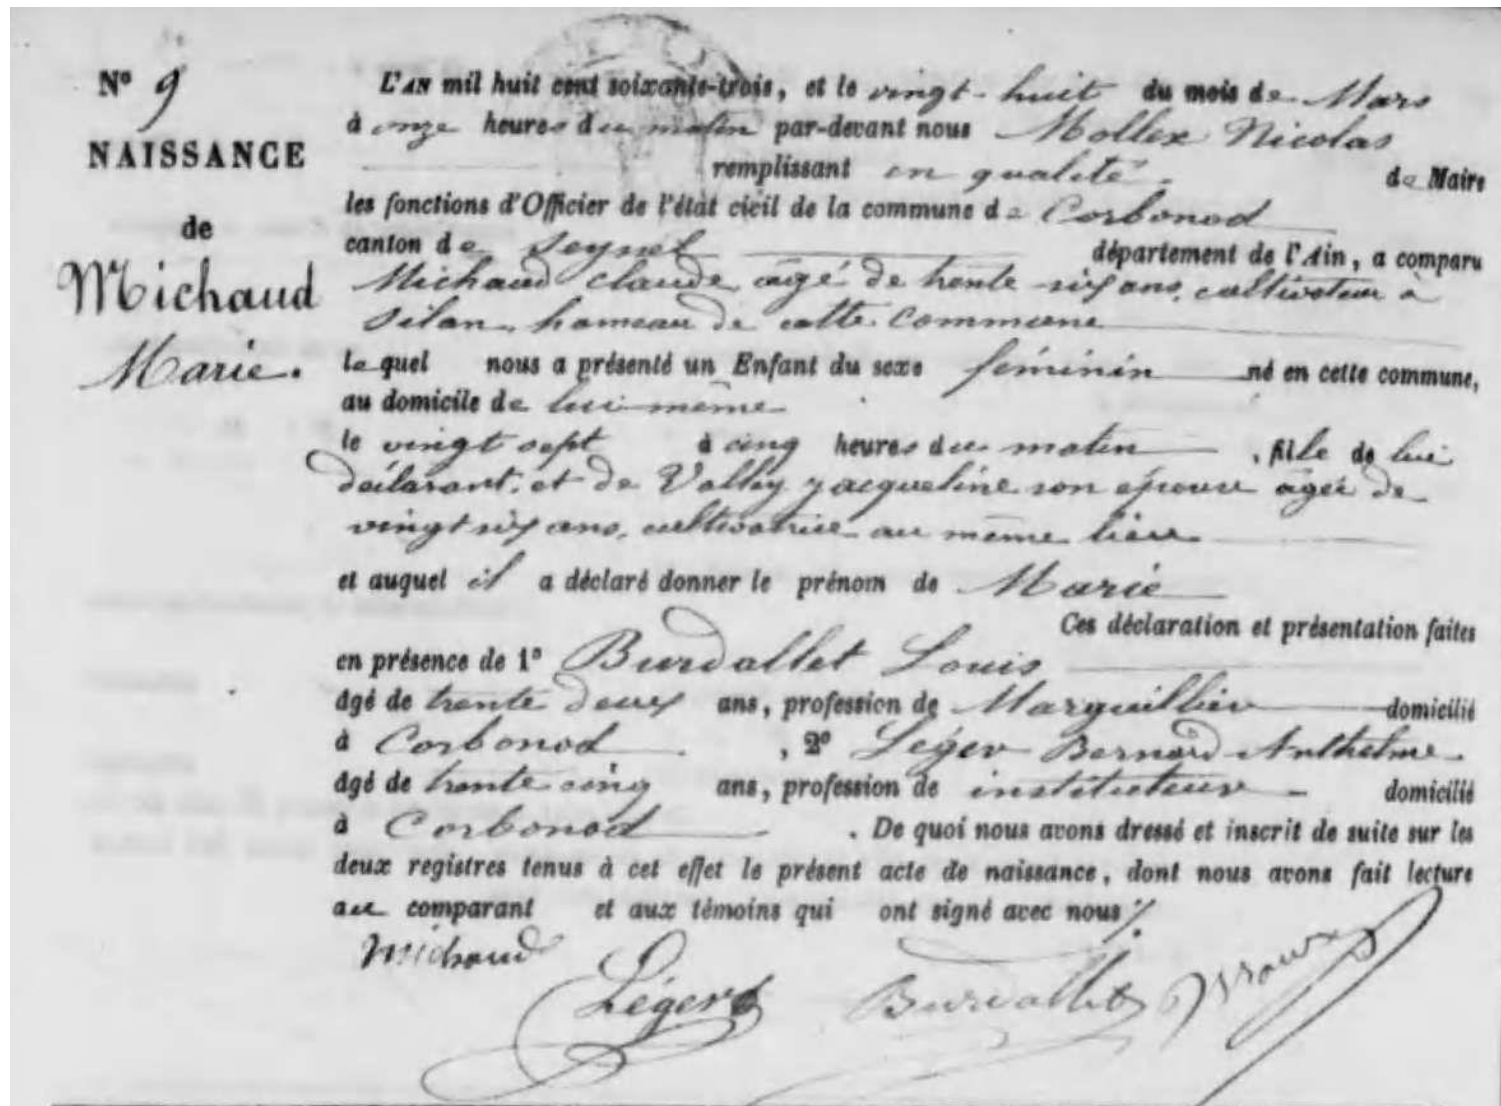 N° 9
NAISSANCE
de
Michaud
Marie.
L'AN mil huit cent soixante-trois, et le vingt-huit du mois de Mars
à onze heures du matin par-devant nous Mollex Nicolas
remplissant en qualité de Maire
les fonctions d'Officier de l'état civil de la commune de Corbonod
canton de Seyssel département de l'Ain, a comparu
Michaud Claude âgé de trente six ans, cultivateur à
Silan, hameau de cette commune
lequel nous a présenté un Enfant du sexe féminin né en cette commune,
au domicile de lui-même
le vingt sept à cinq heures du matin, fille de lui
déclarant, et de Vallay Jacqueline son épouse âgée de
vingt six ans, cultivatrice au même lieu
et auquel il a déclaré donner le prénom de Marie
Ces déclaration et présentation faites
en présence de 1° Burdallet Louis
âgé de trente deux ans, profession de Marguillier domicilié
à Corbonod, 2° Léger Bernard Anthelme
âgé de trente cinq ans, profession de instituteur domicilié
à Corbonod. De quoi nous avons dressé et inscrit de suite sur les
deux registres tenus à cet effet le présent acte de naissance, dont nous avons fait lecture
au comparant et aux témoins qui ont signé avec nous
Michaud Léger Burdallet